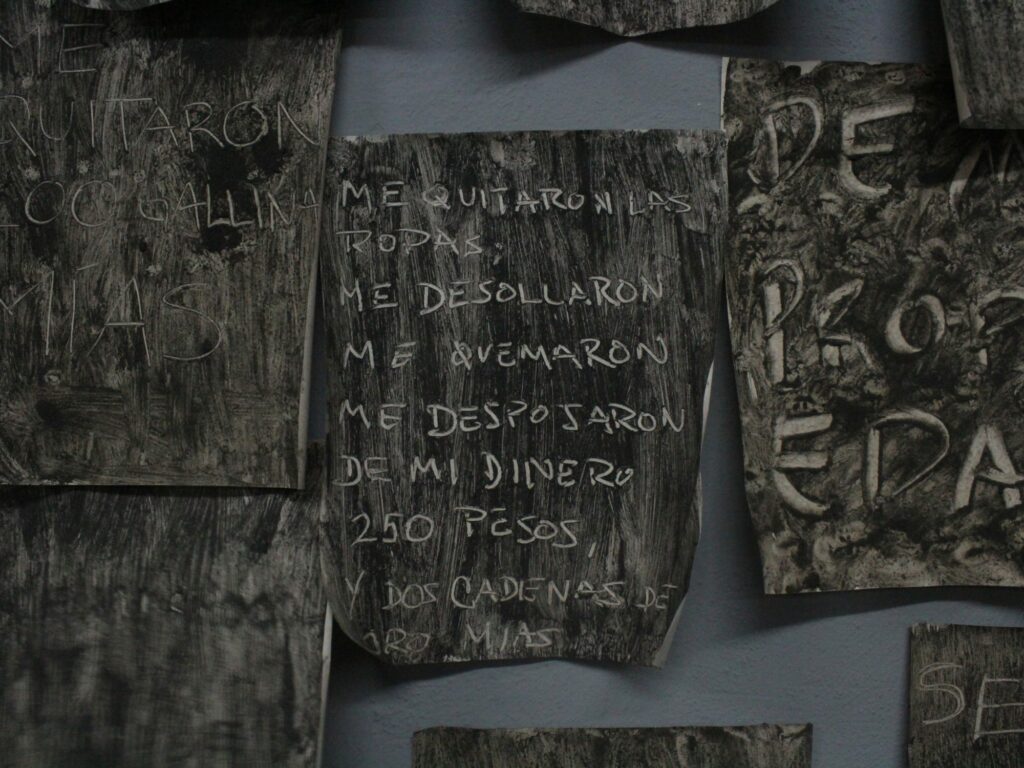 ME
QUITARON
200 GALLINA
MÍAS
ME QUITARON LAS
ROPAS,
ME DESOLLARON
ME QUEMARON
ME DESPOJARON
DE MI DINERO
250 PESOS,
Y DOS CADENAS DE
ORO MIAS
DE M
PROP
EDA
SE